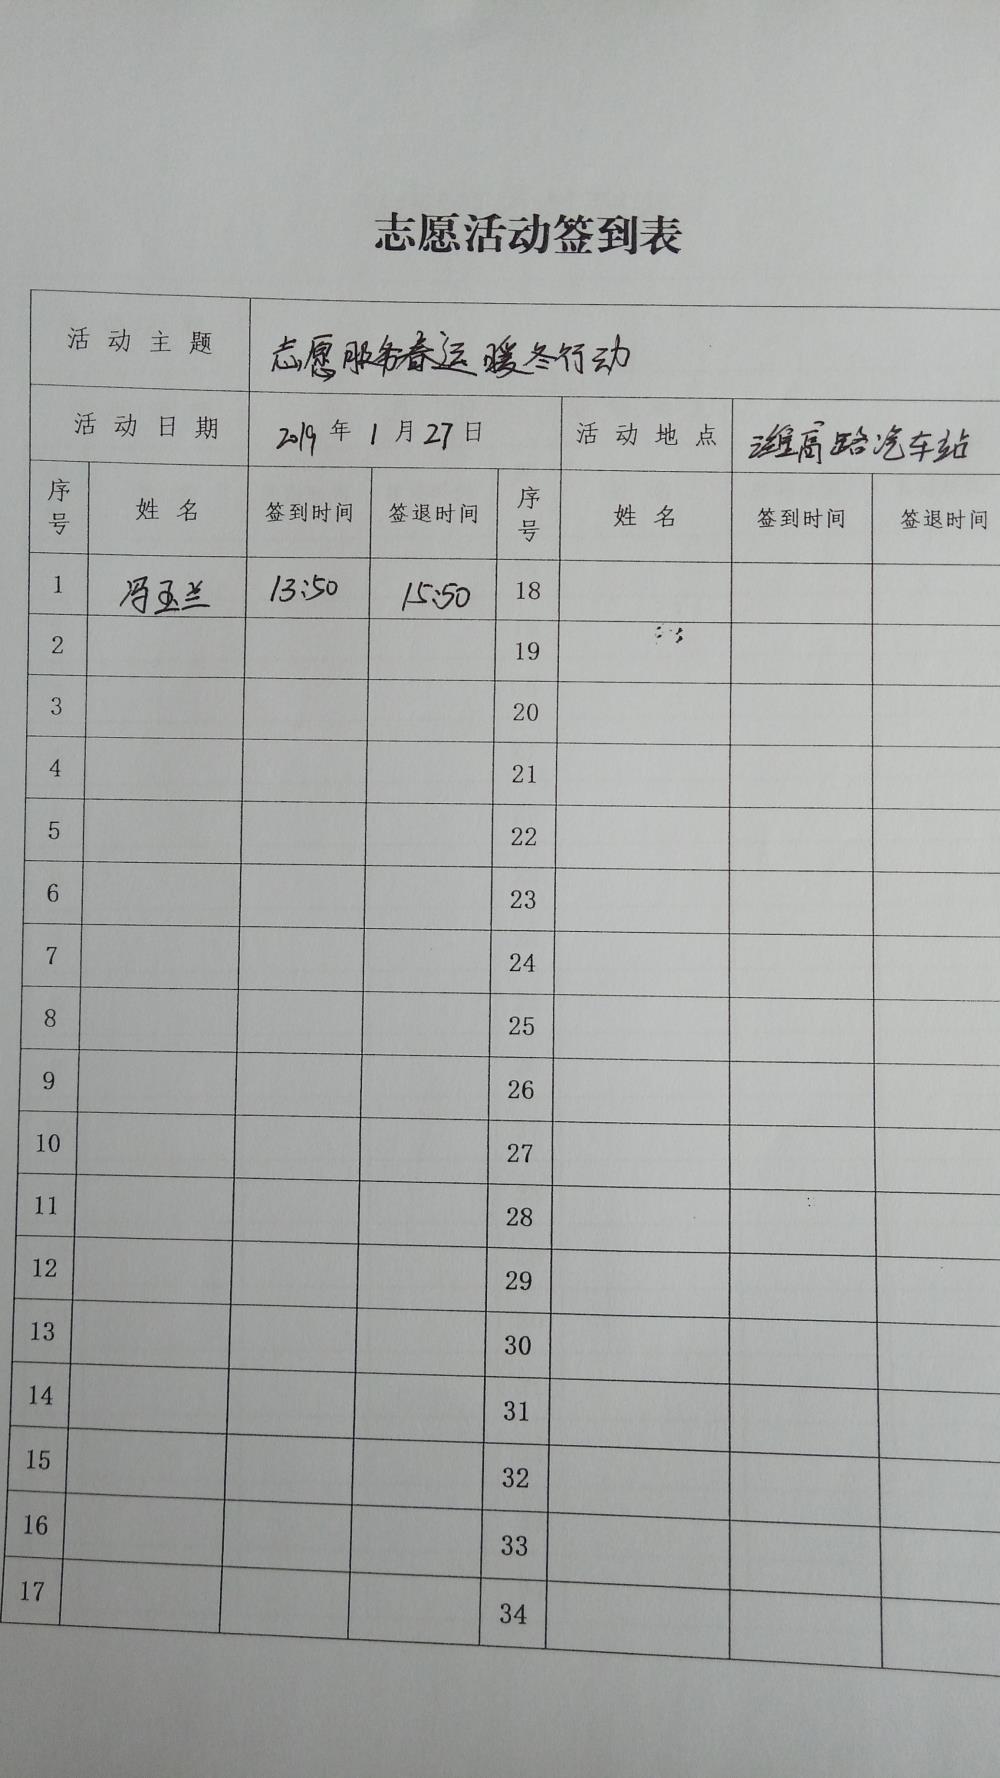 志愿活动签到表
活动主题 志愿服务春运暖冬行动
活动日期 2019年1月27日 活动地点 潍高路汽车站
序号 姓名 签到时间 签退时间 序号 姓名 签到时间 签退时间
1 冯玉兰 13:50 15:50 18
2 19
3 20
4 21
5 22
6 23
7 24
8 25
9 26
10 27
11 28
12 29
13 30
14 31
15 32
16 33
17 34